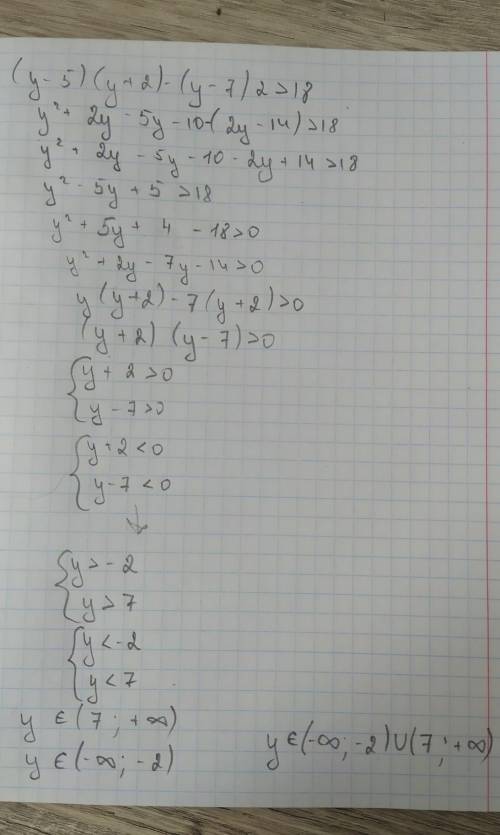 (y-5)(y+2)-(y-7)2>18
y²+2y-5y-10-(2y-14)>18
y²+2y-5y-10-2y+14>18
y²-5y+5>18
y²+5y+4-18>0
y²+2y-7y-14>0
y(y+2)-7(y+2)>0
(y+2)(y-7)>0
{y+2>0
{y-7>0
{y+2<0
{y-7<0
↓
{y>-2
{y>7
{y<-2
{y<7
y∈(7;+∞)
y∈(-∞;-2) y∈(-∞;-2)∪(7;+∞)